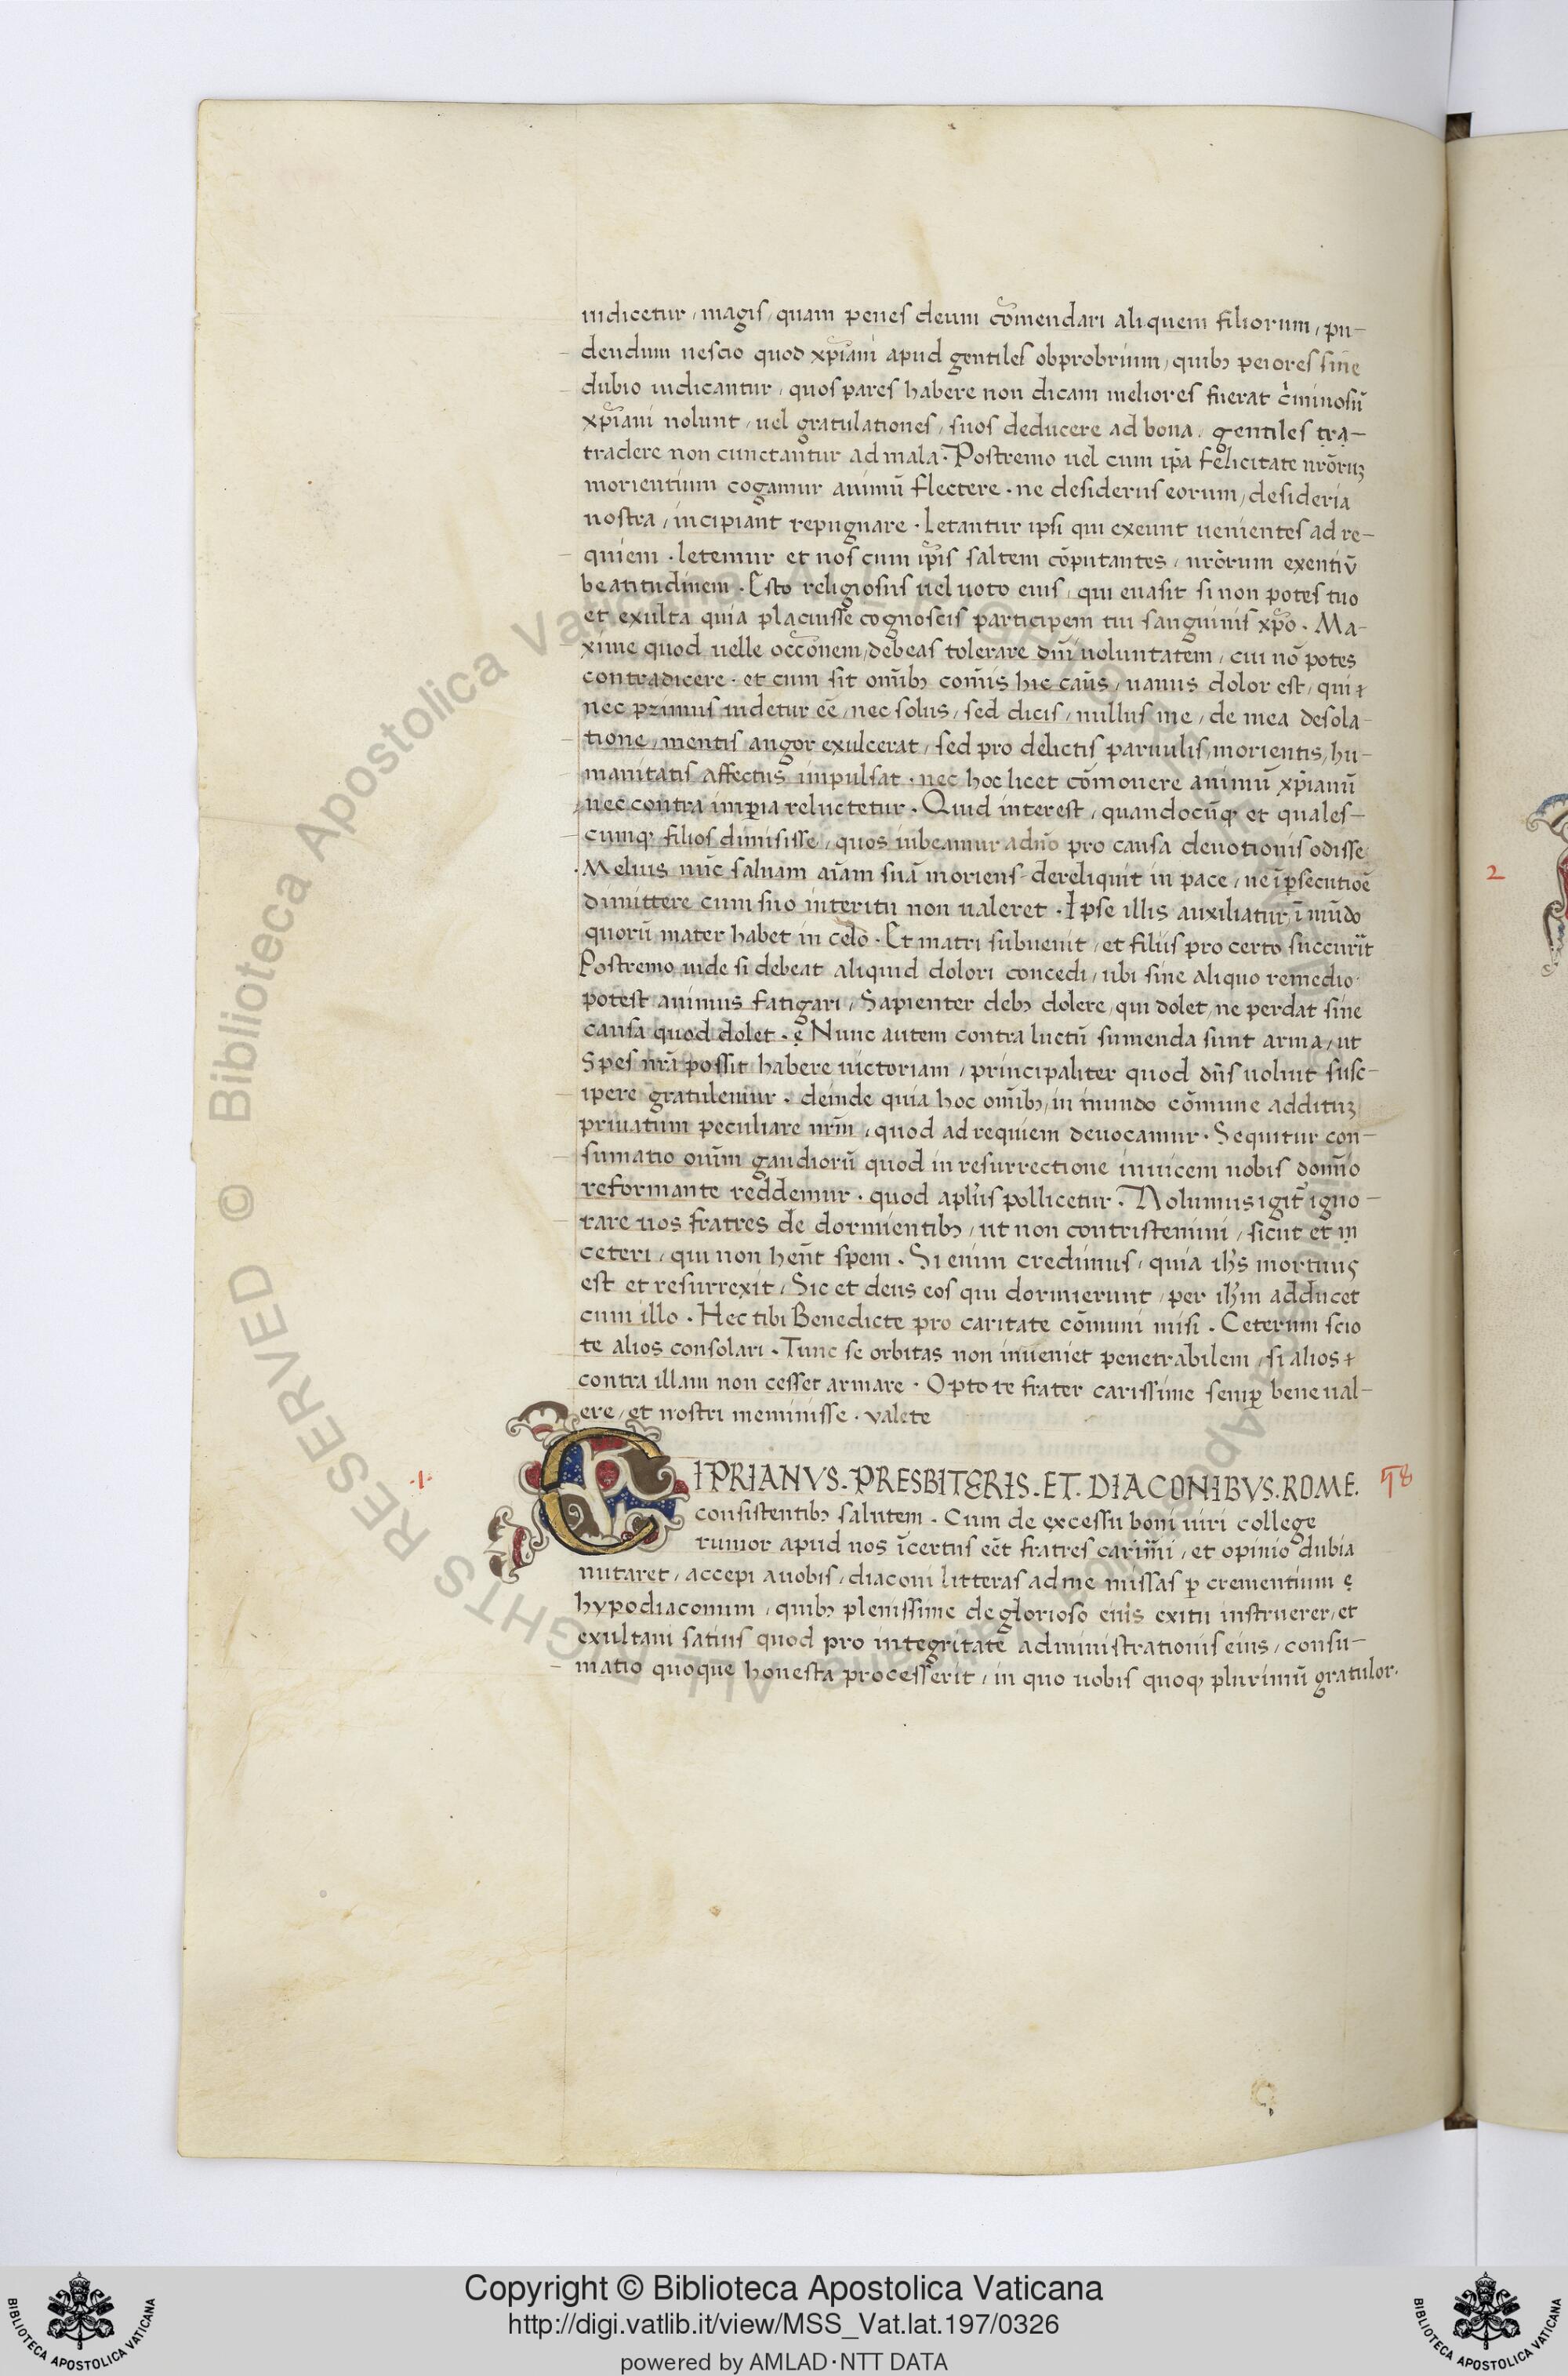 iudicetur, magis, quam penes deum cōmendari aliquem filiorum, pu-
dendum nescio quod xp̄iani apud gentiles obprobrium, quibꝫ peiores sine
dubio iudicantur, quos pares habere non dicam meliores fuerat c̓iminosū
xp̄iani nolunt, uel gratulationes, suos deducere ad bona. gentiles tra-
tradere non cunctantur ad mala. Postremo uel cum ip̄a felicitate nr̄oruꝫ
morientium cogamur animū flectere. ne desideriis eorum, desideria
nostra, incipiant repugnare. Letantur ipsi qui exeunt uenientes ad re-
quiem. letemur et nos cum ip̄is saltem cōputantes, nr̄orum exentiū
beatitudinem. Esto religiosus uel uoto eius, qui euasit si non potes tuo
et exulta quia placuisse cognoscis participem tui sanguinis xp̄o. Ma-
xime quod uelle occ̄onem, debeas tolerare dn̄i uoluntatem, cui nō potes
contradicere. et cum sit om̄ibꝫ com̄is hic caūs, uanus dolor est, qui
nec primus uidetur eē, nec solus, sed dicis, nullus me, de mea desola-
tione, mentis angor exulcerat, sed pro delictis paruulis, morientis, hu-
manitatis affectus impulsat. nec hoc licet cōmouere animū xp̄ianū
nec contra imꝑia reluctetur. Quid interest, quandocūqꝫ et quales-
cumqꝫ filios dimisisse, quos iubeamur a dn̄o pro causa deuotionis odisse
Melius nūc saluam aīam suā moriens dereliquit in pace, ne ī ꝑsecutiōe
dimittere cum suo interitu non ualeret. Ipse illis auxiliatur, ī mūdo
quorū mater habet in celo. Et matri subuenit, et filiis pro certo succurit
Postremo uide si debeat aliquid dolori concedi, ubi sine aliquo remedio
potest animus fatigari, Sapienter debꝫ dolere, qui dolet, ne perdat sine
causa quod dolet. ę Nunc autem contra luctū sumenda sunt arma, ut
Spes nr̄a possit habere uictoriam, principaliter quod dn̄s uoluit susc-
ipere gratulemur. deinde quia hoc om̄ibꝫ, in mundo cōmune addituꝫ
priuatum peculiare nr̄m, quod ad requiem deuocamur. Sequitur con-
sumatio ouīm gaudiorū quod in resurrectione inuicem nobis dom̄o
reformante reddemur. quod apl̄us pollicetur. Nolumus igit̄ igno-
rare uos fratres de dormientibꝫ, ut non contristemini, sicut et
ceteri, qui non hen̄t spem. Si enim credimus, quia ih̄s mortuus
est et resurrexit, Sic et deus eos qui dormierunt, per ih̄m adducet
cum illo. Hec tibi Benedicte pro caritate cōmuni misi. Ceterum scio
te alios consolari. Tunc se orbitas non inueniet penetrabilem, si alios
contra illam non cesset armare. Opto te frater carissime semꝑ bene ual-
ere, et nostri meminisse. valete
CIPRIANVS. PRESBITERIS. ET. DIACONIBVS. ROME. 58
.1.
consistentibꝫ salutem. Cum de excessu boni uiri college
rumor apud nos īcertus eēt fratres carim̄i, et opinio dubia
nutaret, accepi a uobis, diaconi litteras ad me missas ꝑ crementium ę
hypodiaconum, quibꝫ plenissime de glorioso eius exitu instruerer, et
exultaui satius quod pro integritate administrationis eius, consu-
matio quoque honesta processerit, in quo uobis quoqꝫ plurimū gratulor.
2
© Biblioteca Apostolica Vaticana
ALL RIGHTS RESERVED
Copyright © Biblioteca Apostolica Vaticana
http://digi.vatlib.it/view/MSS_Vat.lat.197/0326
powered by AMLAD·NTT DATA
BIBLIOTECA APOSTOLICA VATICANA
BIBLIOTECA APOSTOLICA VATICANA